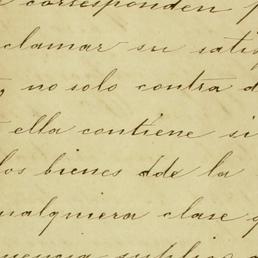 corresponden p
clamar su satis
no solo contra d
ella contiene si
los bienes dde la
ualquiera clase q